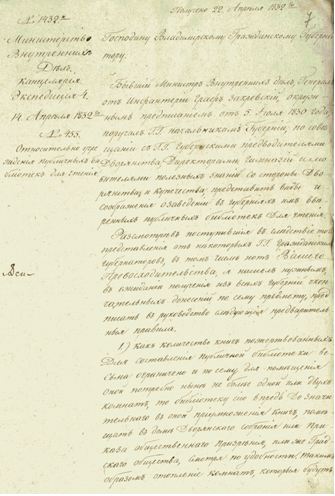 № 1439
Получено 22 Апреля 1832 го
7
Министерство
Внутреннихъ
Дѣлъ.
Канцелярія
Экспедиція 4.
14 Апреля 1832 го
№ 455.
Относительно учре
жденія публичныхъ би
бліотекъ для чтенія.
Господину Владимирскому Гражданскому Губерна
тору.
Бывшій Министръ Внутреннихъ дѣлъ, Генералъ
отъ Инфантеріи Графъ Закревскій, циркуляр
нымъ предписаніемъ отъ 5 Іюля 1830 года,
поручилъ Г.Г. начальникамъ Губерній: по совѣ
щаніи съ Г.Г. Губернскими предводителями
Дворянства, Директорами Гимназій и лю
бителями полезныхъ знаній со стороны Дво
рянства и Купечества; представить виды и
соображенія о заведеніи въ губерніяхъ имъ ввѣ
ренныхъ публичныхъ библіотекъ для чтенія.
Разсмотрѣвъ поступившія въ слѣдствіе того
представленія отъ нѣкоторыхъ Г.Г. Гражданскихъ
губернаторовъ, въ томъ числѣ и отъ Вашего
Превосходительства, я нашелъ нужнымъ,
въ ожиданіи полученія изъ всѣхъ губерній окон
чательныхъ донесеній по сему предмету, пред
писать въ руководство слѣдующія предваритель
ныя правила.
1.) какъ количество книгъ пожертвованныхъ
для составленія публичной библіотеки ве
сьма ограничено и по сему для помѣщенія
оной потребно нынѣ не болѣе одной или двухъ
комнатъ, то библіотеку сію впредь до значи
тельнаго въ оной пріумноженія книгъ, помѣ
щать въ домѣ Дворянскаго собранія или При
каза общественнаго призрѣнія, или же Град
скаго общества, смотря по удобности; такимъ
образомъ отопленіе комнатъ, которыя будутъ